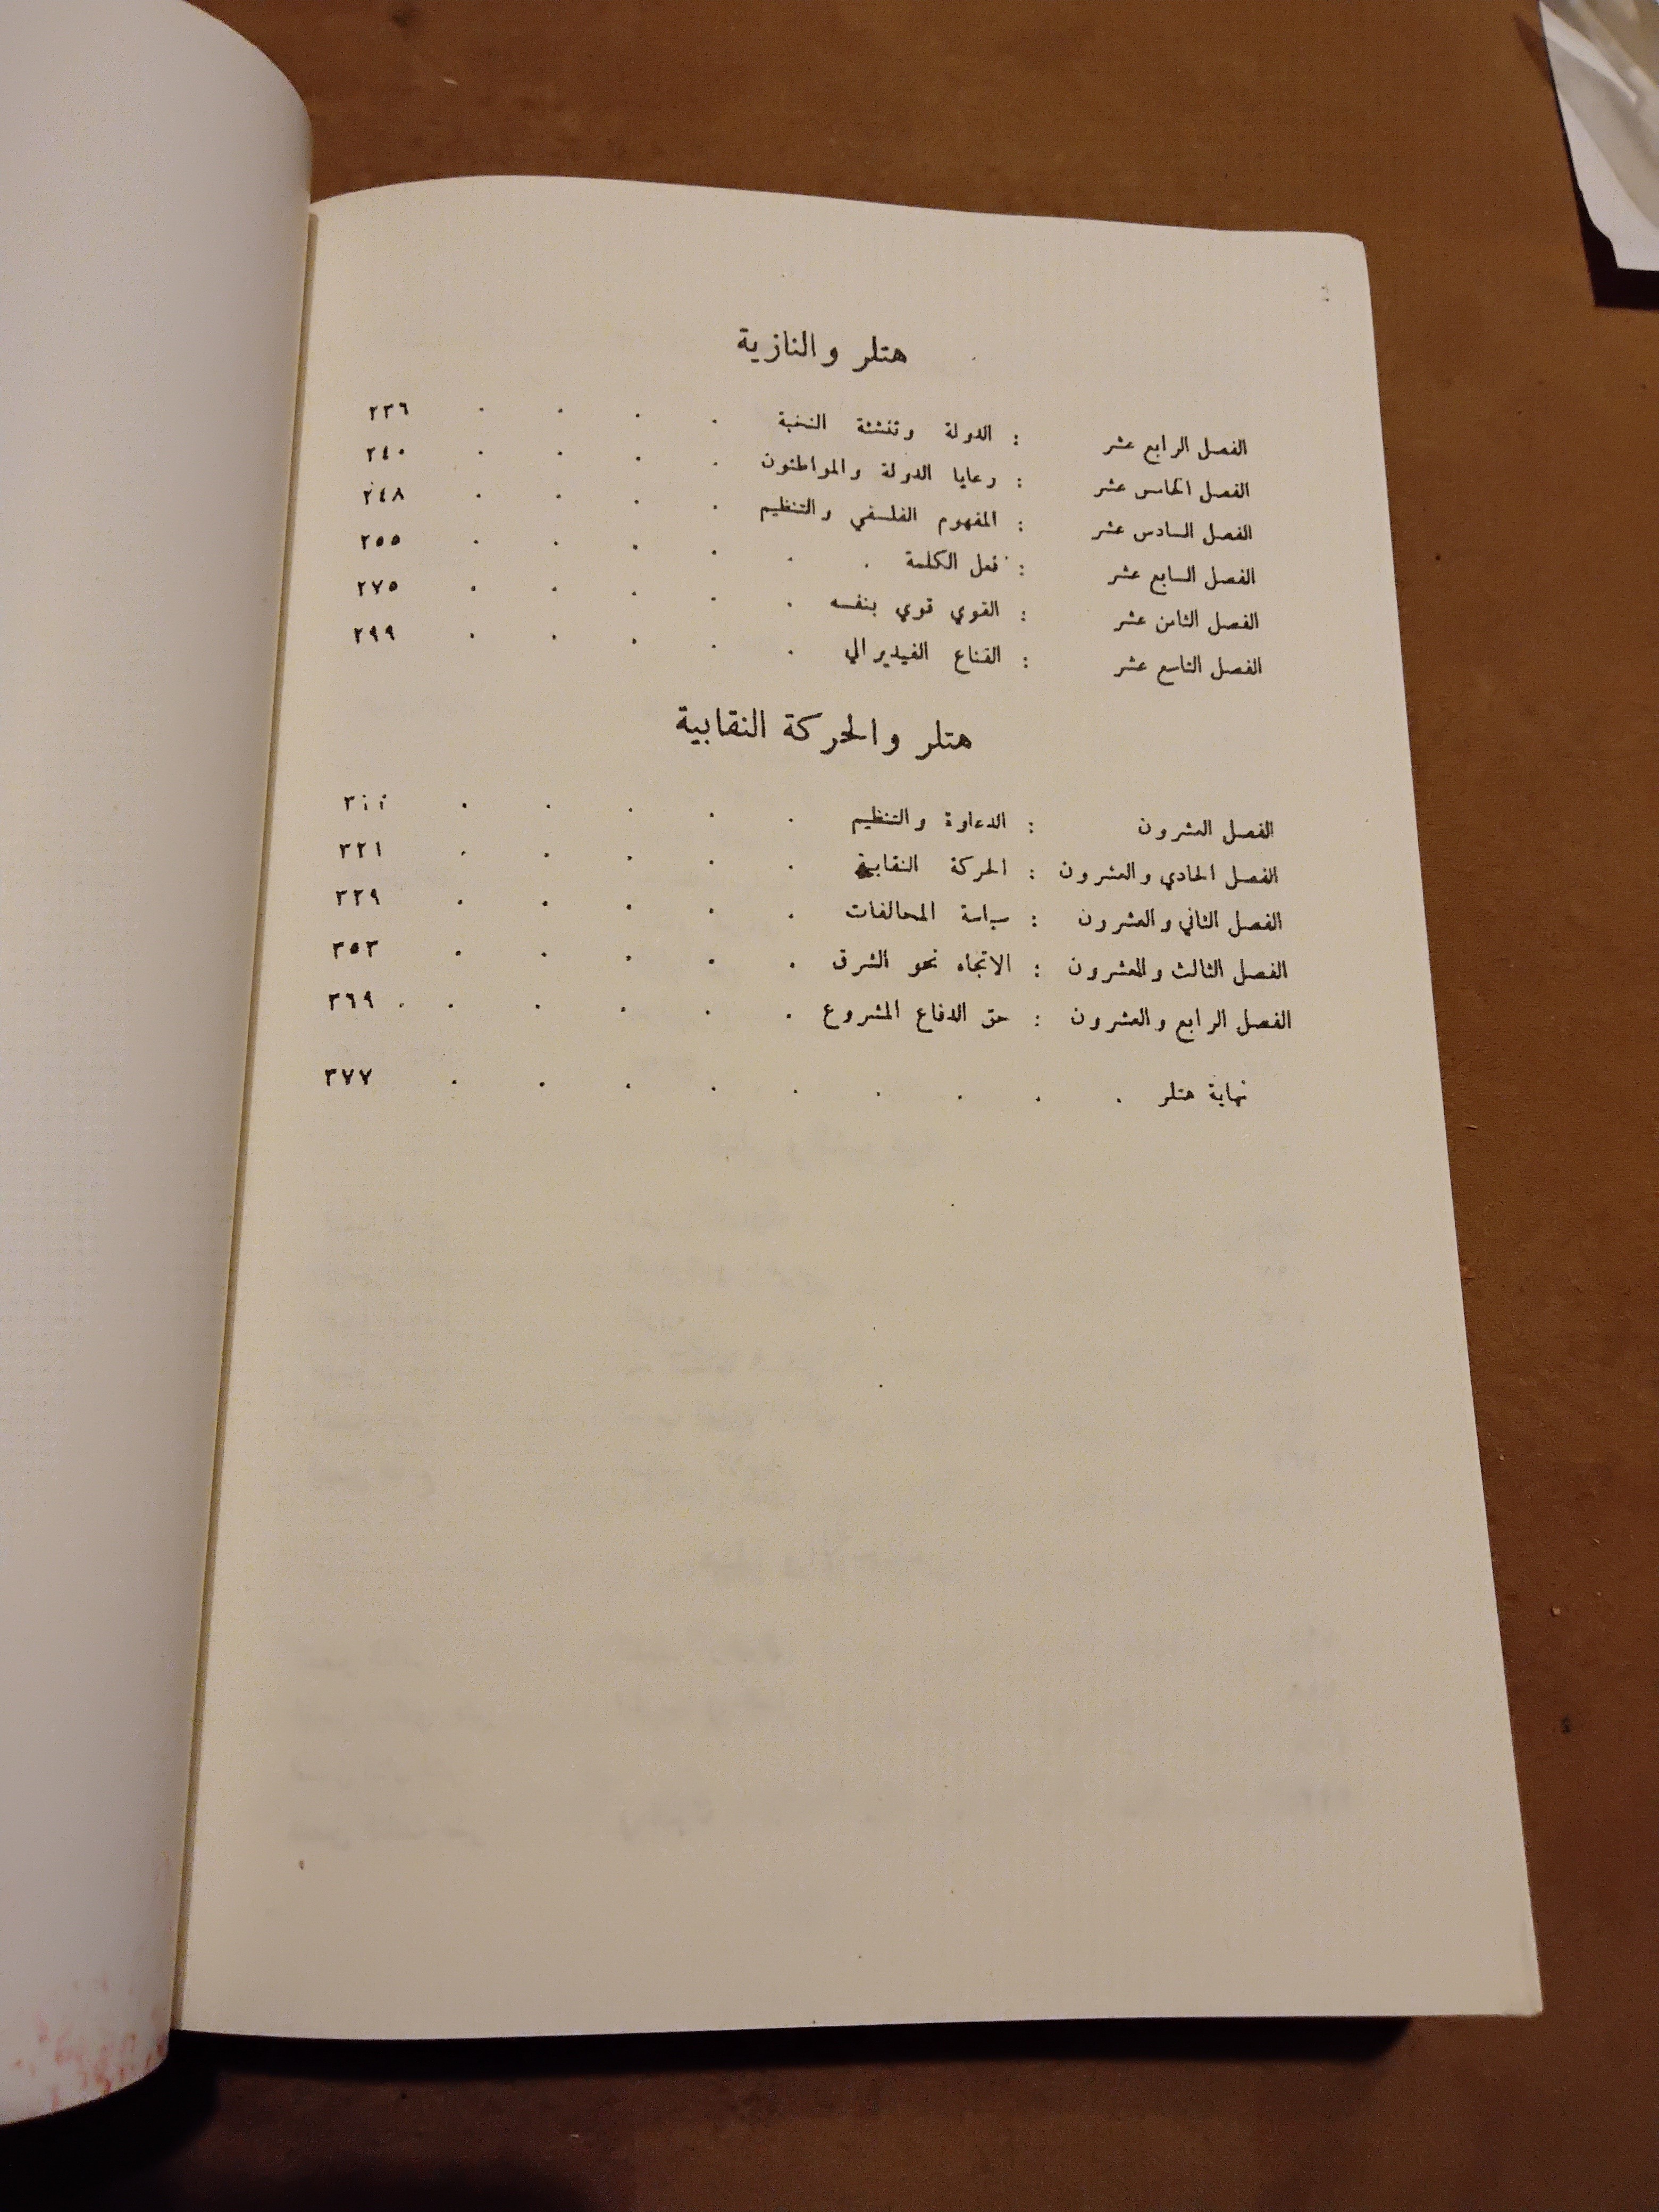 هتلر والنازية
الفصل الرابع عشر : الدولة وتنشئة النخبة . . . . ٢٣٦
الفصل الخامس عشر : رعايا الدولة والمواطنون . . . . ٢٤٠
الفصل السادس عشر : المفهوم الفلسفي والتنظيم . . . . ٢٤٨
الفصل السابع عشر : فعل الكلمة . . . . . . ٢٥٥
الفصل الثامن عشر : القوي قوي بنفسه . . . . . ٢٧٥
الفصل التاسع عشر : القناع الفيديرالي . . . . . ٢٩٩
هتلر والحركة النقابية
الفصل العشرون : الدعاوة والتنظيم . . . . .
الفصل الحادي والعشرون : الحركة النقابية . . . . . ٣٢١
الفصل الثاني والعشرون : سياسة المحالفات . . . . . ٣٢٩
الفصل الثالث والعشرون : الاتجاه نحو الشرق . . . . . ٣٥٣
الفصل الرابع والعشرون : حق الدفاع المشروع . . . . . . ٣٦٩
نهاية هتلر . . . . . . . . . ٣٧٧